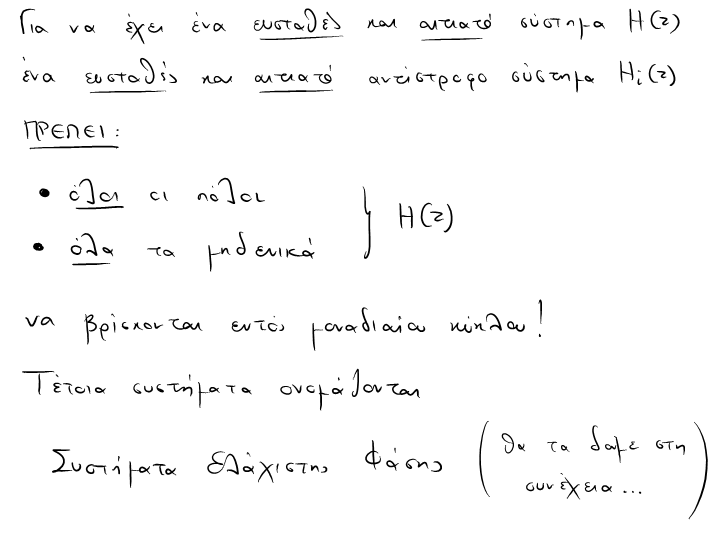 Για να έχει ένα ευσταθές και αιτιατό σύστημα H(z)
ένα ευσταθές και αιτιατό αντίστροφο σύστημα Hi(z)
ΠΡΕΠΕΙ:
• όλοι οι πόλοι
• όλα τα μηδενικά } H(z)
να βρίσκονται εντός μοναδιαίου κύκλου!
Τέτοια συστήματα ονομάζονται
Συστήματα Ελάχιστης Φάσης (θα τα δούμε στη
συνέχεια...)